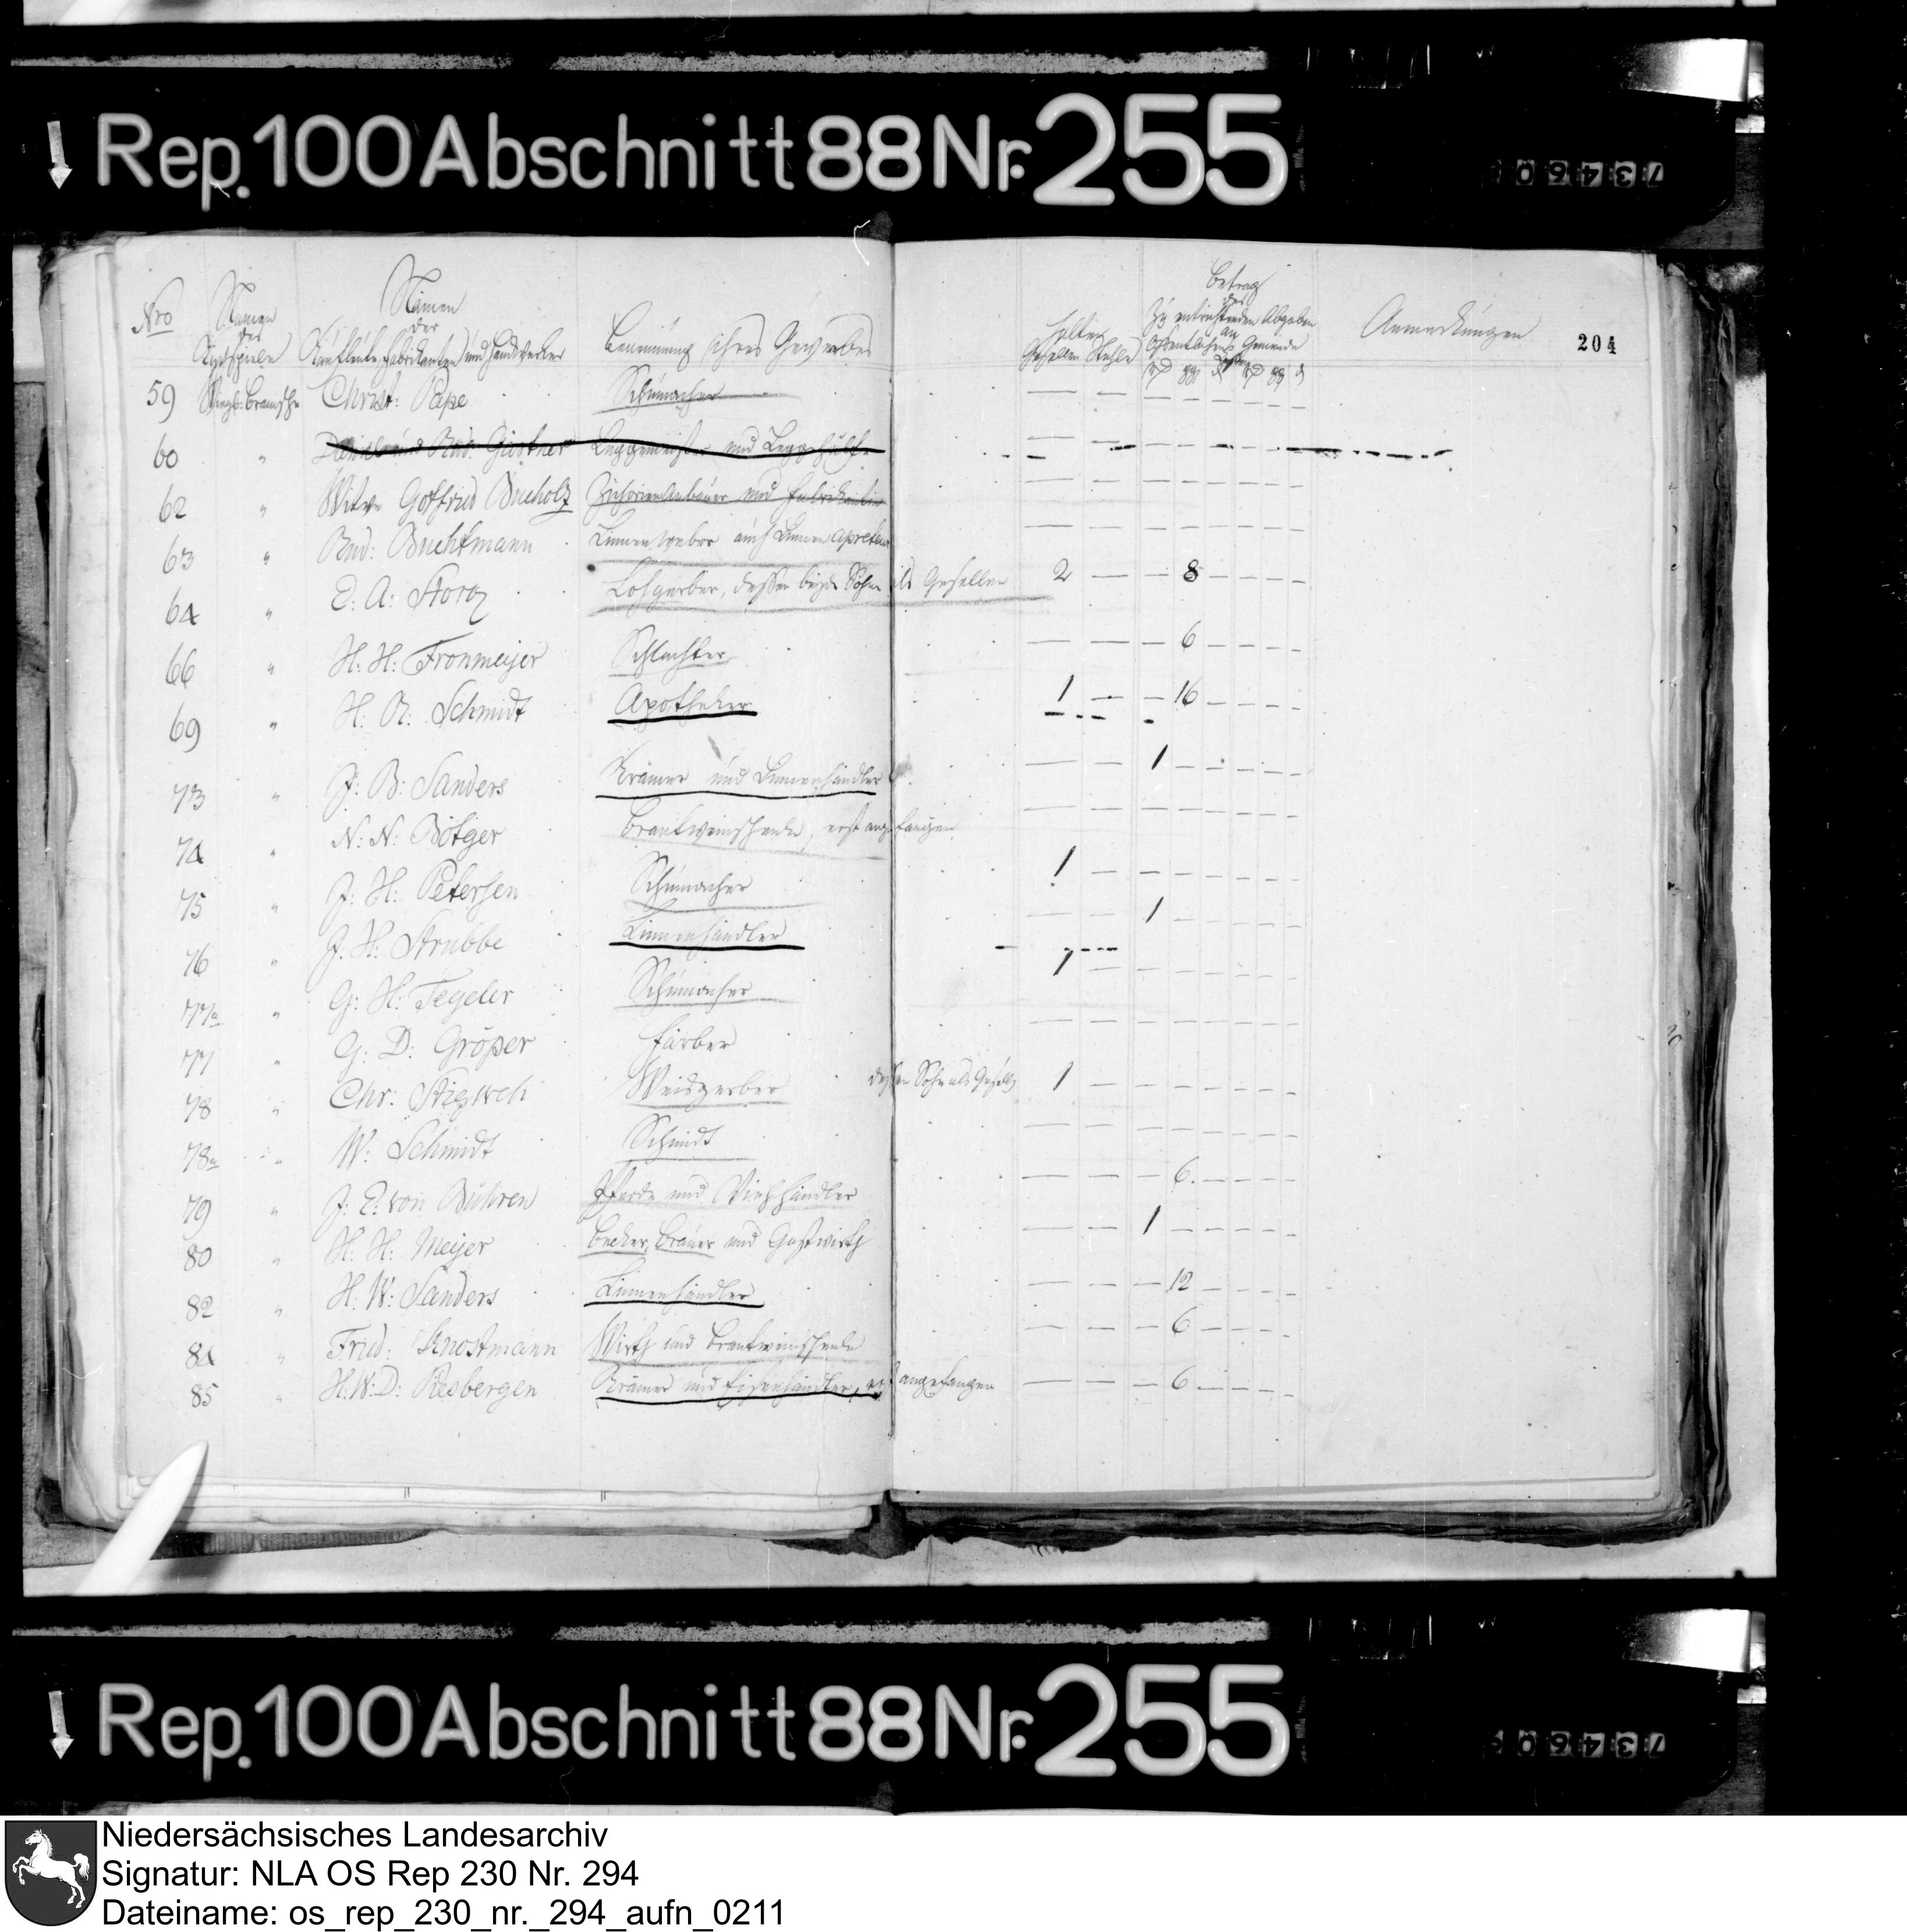 Rep. 100 Abschnitt 88 Nr. 255
73460
204
Nro Namen der Kirchspiele Namen der Kaufleute, Fabrikanten und Handwerker Benennung ihres Gewerbes Halten Gesellen Stühle Betrag der zu entrichtenden Abgaben an Anmerkungen
59 Christ: Pape Schumacher — —
60 " Leggemeister und — —
62 " Witwe Gottfried Bucholz und Fabrikantin — —
63 " Rud: Buchtmann Linnen weber auch Linnen Apreteur — —
64 " E. A: Storg Lohgerber, dessen beyde Söhne als Gesellen 2 — — 8
66 " H: H: Fronmeijer Schlachter — — — 6
69 " H: R: Schmidt Apotheker 1 — — 16
73 " J: B: Sanders Krämer und Linnenhändler — — 1
74 " N: N: Bötger Brantweinschenke, erst angefangen — —
75 " J: H: Petersen Schumacher 1 —
76 " J. H: Strubbe Linnenhändler — — 1
77a " G: H: Tegeler Schumacher 1 —
77 " G: D: Gröper Färber — —
78 " Chr: Weisgerber dessen Sohn als Gesell 1 —
78a " W: Schmidt Schmidt — —
79 " J: E: von Bühren Pferde und Viehhändler — — — 6
80 " H: H: Meijer Becker, Brauer und Gastwirth — — 1
82 " H. W: Sanders Linnenhändler — — — 12
84 " Frid: Knostmann Wirth und Brantweinschenke — — — 6
85 " H: W: D: Resbergen Krämer und Eisenhändler, erst angefangen — — — 6
Rep. 100 Abschnitt 88 Nr. 255
73460
Niedersächsisches Landesarchiv
Signatur: NLA OS Rep 230 Nr. 294
Dateiname: os_rep_230_nr._294_aufn_0211